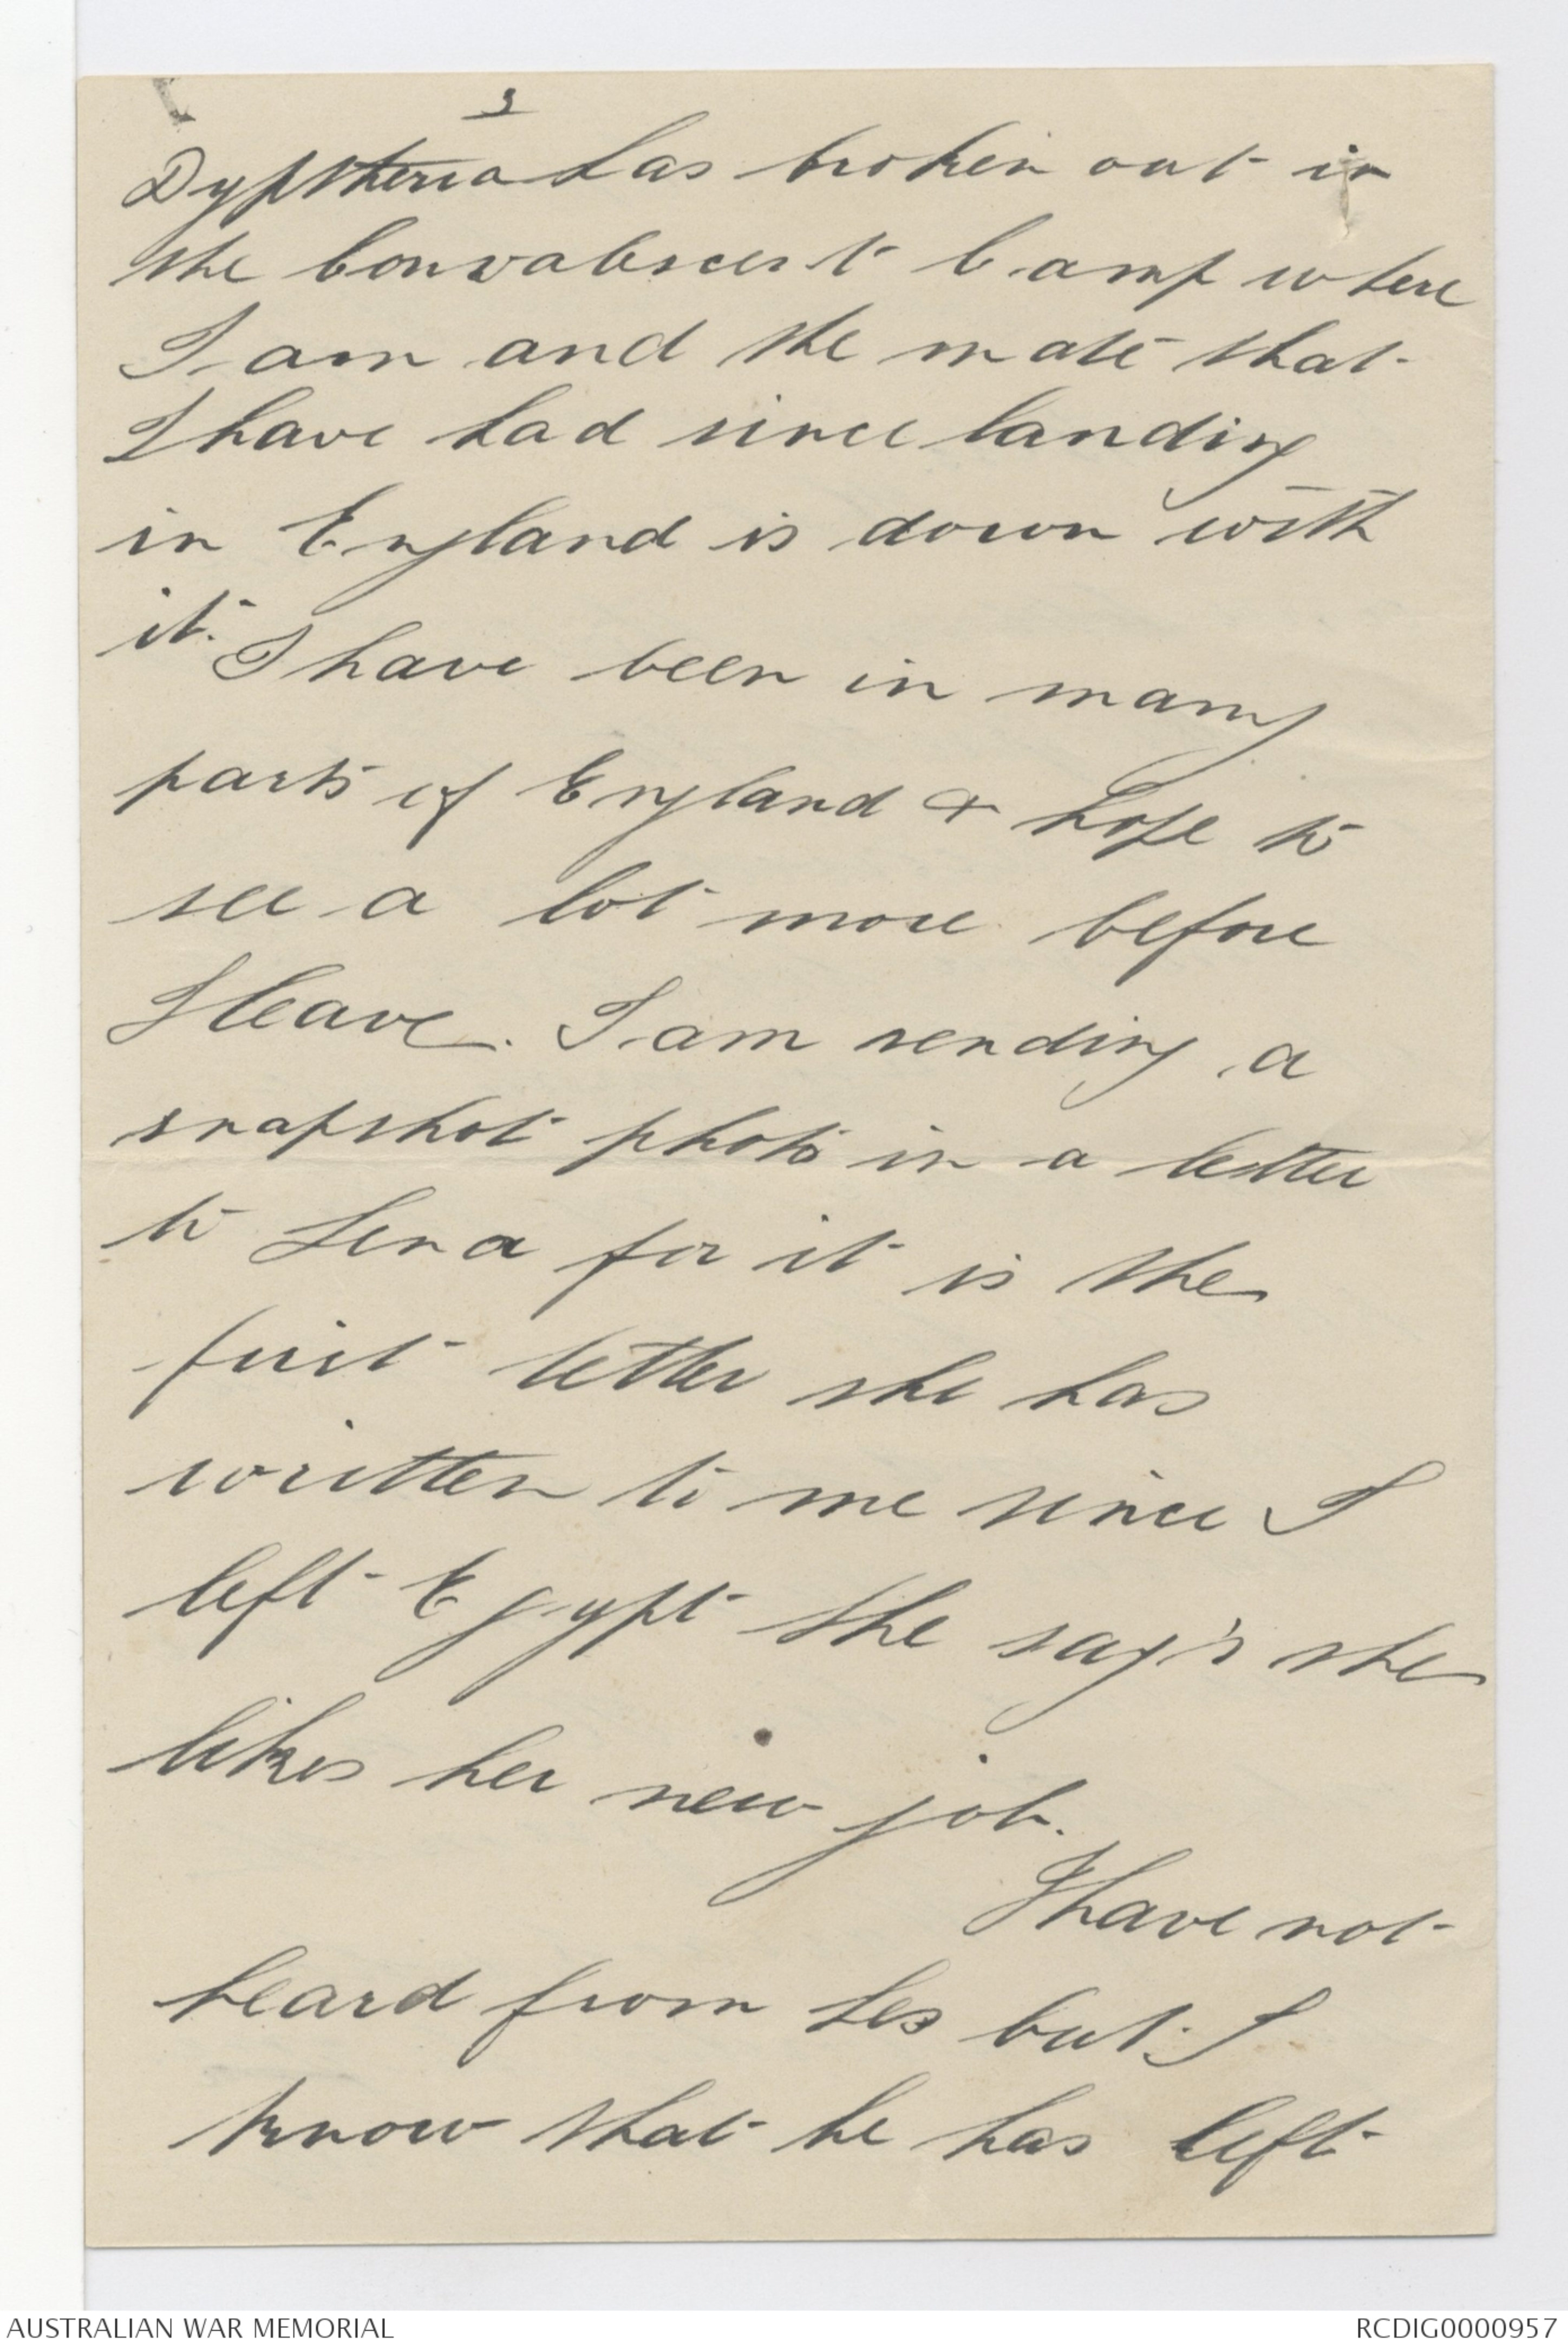 3
Dyptheria has broken out in
the Convalescent Camp where
I am and the mate that
I have had since landing
in England is down with
it. I have been in many
parts of England & hope to
see a lot more before
I leave. I am sending a
snapshot photo in a letter
to Lena for it is the
first letter she has
written to me since I
left Egypt she say's she
likes her new job.
I have not
heard from Les but I
know that he has left
AUSTRALIAN WAR MEMORIAL
RCDIG0000957